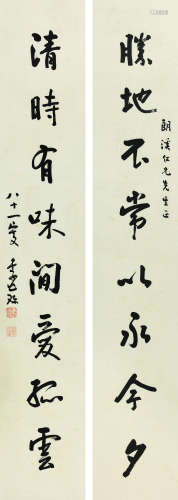 朗溪仁兄先生正
勝地不常以永今夕
清時有味閒愛孤雲
八十一叟